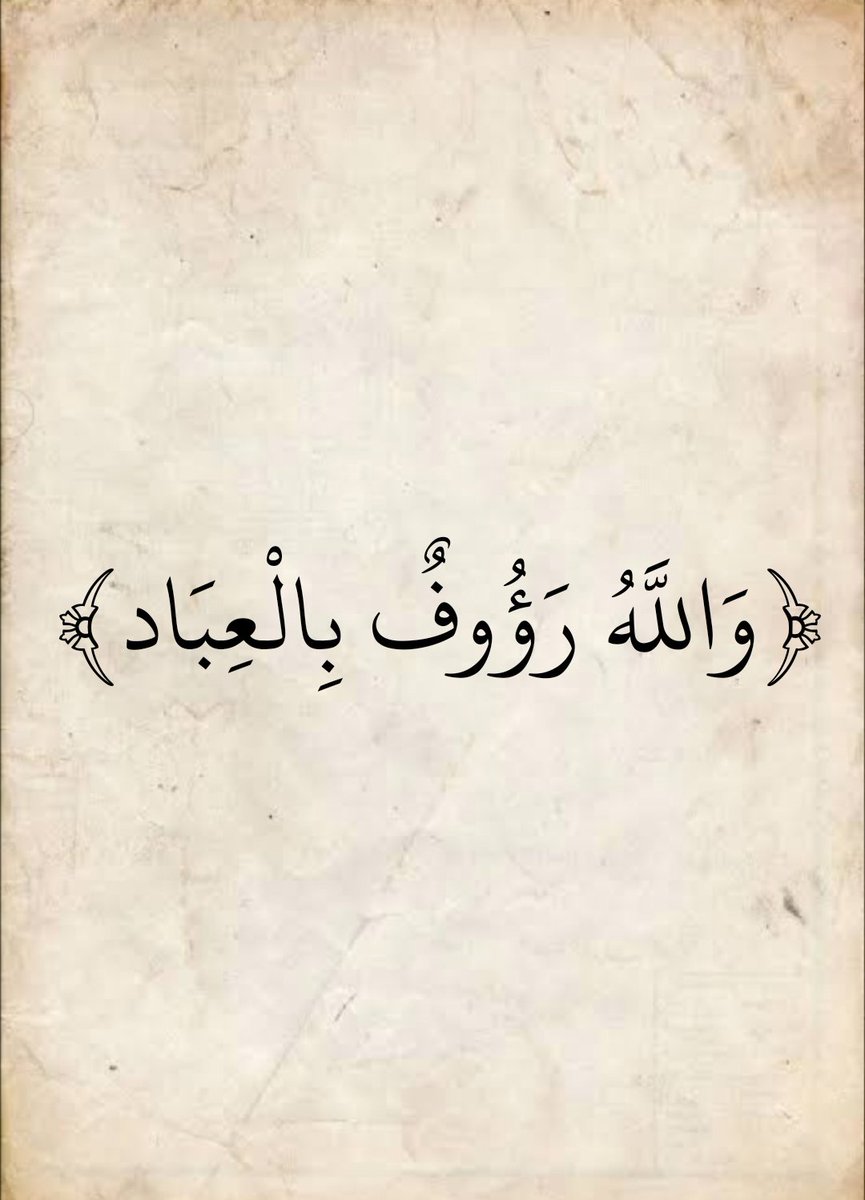 ﴿وَاللَّهُ رَؤُوفٌ بِالْعِبَاد﴾